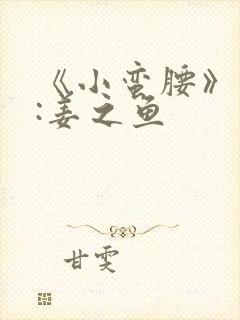 《小蛮腰》
:姜之鱼
甘雯